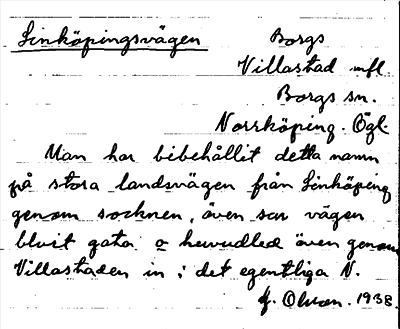 Linköpingsvägen
Borgs
Villastad mfl
Borgs sn.
Norrköping. Ögl.
Man har bibehållit detta namn
på stora landsvägen från Linköping
genom socknen, även sen vägen
blivit gata o huvudled även genom
Villastaden in i det egentliga N.
Olsson. 1938.